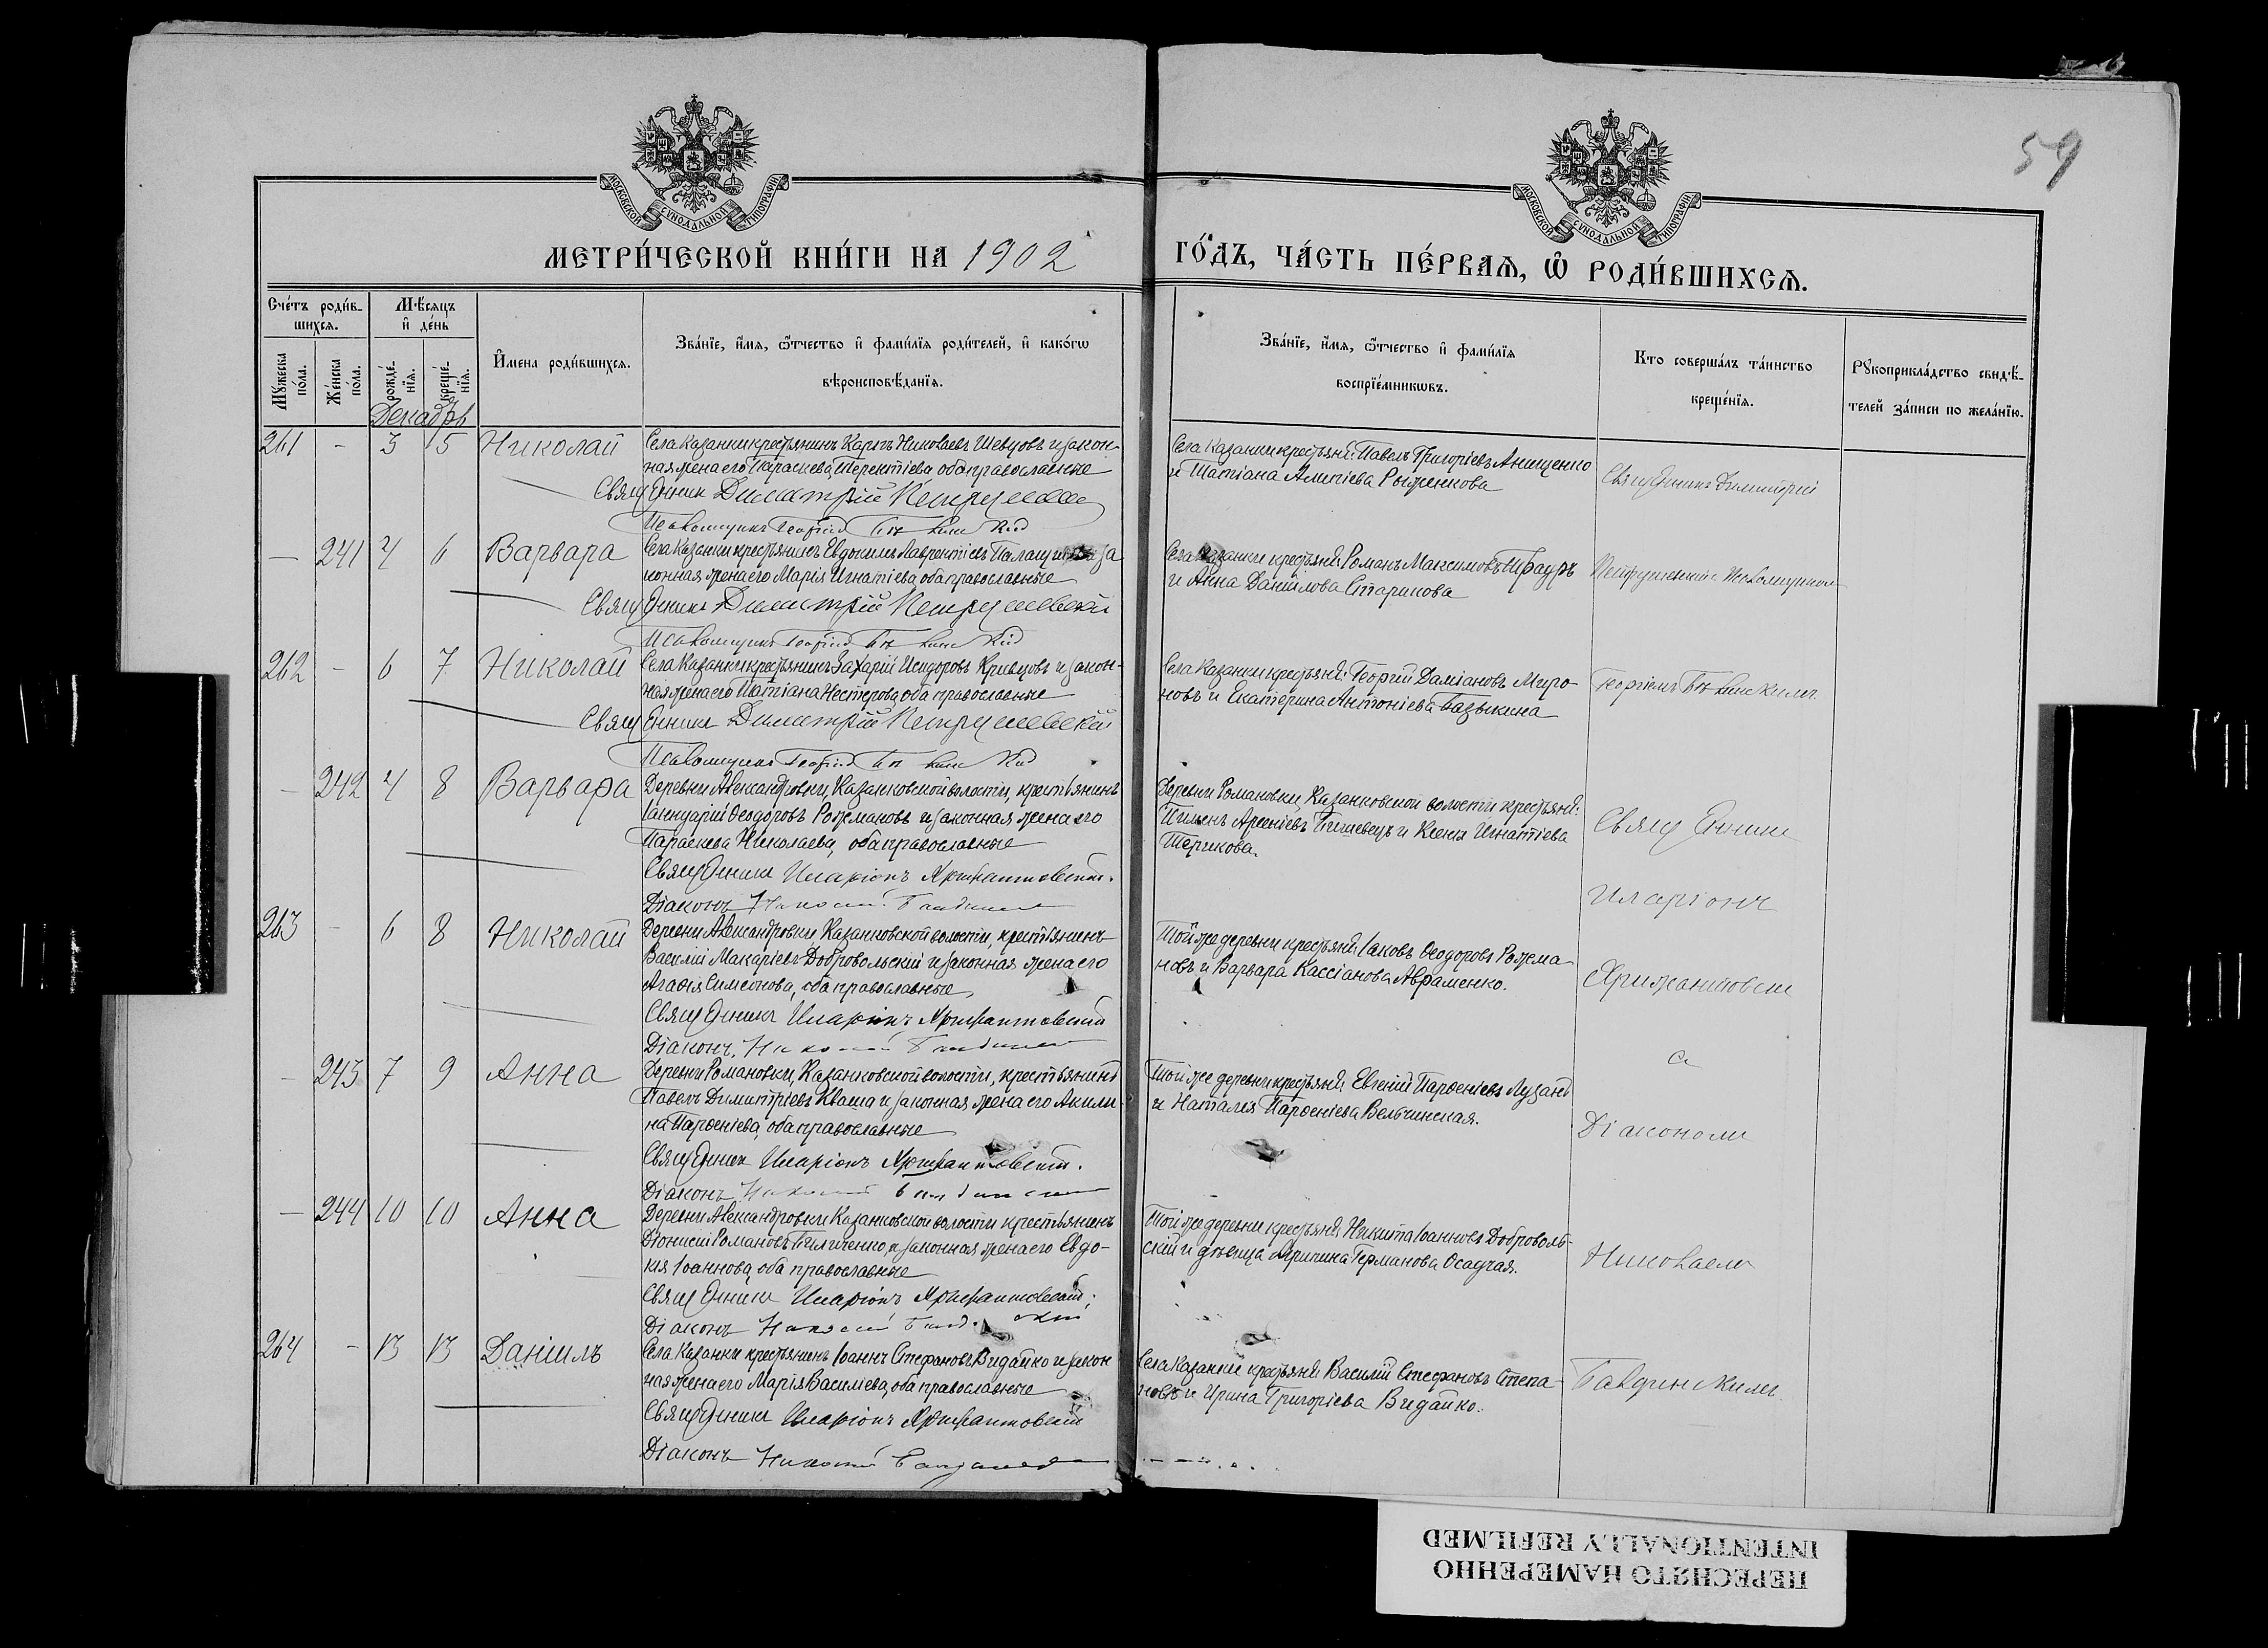 59
МОСКОВСКОЙ СѴНОДАЛЬНОЙ ТИПОГРАФІИ
МОСКОВСКОЙ СѴНОДАЛЬНОЙ ТИПОГРАФІИ
МЕТРИ́ЧЕСКОЙ КНИ́ГИ НА 1902
ГО́ДЪ, ЧА́СТЬ ПЕ́РВАѦ, Ѡ҆ РОДИ́ВШИХСѦ.
Сче́тъ роди́в-
шихсѧ.
Мꙋжеска по́ла.
Же́нска по́ла.
Мѣ́сѧцъ
и҆ де́нь
рожде́-
нїѧ.
креще́-
нїѧ.
Декабрь
И҆мена роди́вшихсѧ.
Зва́нїе, и҆́мѧ, ѻ҆́тчество и҆ фами́лїѧ роди́телей, и҆ како́гѡ
вѣроисповѣ́данїѧ.
Зва́нїе, и҆́мѧ, ѻ҆́тчество и҆ фами́лїѧ
воспрїе́мникѡвъ.
Кто соверша́лъ та́инство
креще́нїѧ.
Рꙋкоприкла́дство свидѣ́-
телей за́писи по жела́нїю.
261 - 3 5 Николай
Села Казанки крестьянинъ Карпъ Николаевъ Шевцовъ и закон-
ная жена его Параскева Терентіева, оба православные
Священникъ Димитрій
Псаломщикъ Георгій
Села Казанки крестьяни: Павелъ Григоріевъ Анищенко
и Татіана Алипіева Рыженкова
Священникъ Димитрій
— 241 4 6 Варвара
Села Казанки крестьянинъ Евдокимъ Лаврентіевъ
конная жена его Марія Игнатіева, оба православные
Священникъ Димитрій Петрушевскій
Псаломщикъ Георгій
Села Казанки крестьяни: Романъ Максимовъ
и Анна Даніилова Старикова
262 - 6 7 Николай
Села Казанки крестьянинъ Захарій Исидоровъ Кривцовъ и закон-
ная жена его Татіана Нестерова, оба православные
Священникъ Димитрій Петрушевскій
Псаломщикъ Георгій
Села Казанки крестьяни: Георгій Даміановъ Миро-
новъ и Екатерина Антоніева Базыкина
Георгіемъ
— 242 4 8 Варвара
Деревни Александровки, Казанковской волости, крестьянинъ
Іаннуарій Ѳеодоровъ Рожмановъ и законная жена его
Параскева Николаева, оба православные
Священникъ Иларіонъ
Діаконъ Николай
Деревни Романовки, Казанковской волости крестьяни:
Пименъ Арсеніевъ и Ксенія Игнатіева
Терикова.
Священникъ
Иларіонъ
263 - 6 8 Николай
Деревни Александровки Казанковской волости, крестьянинъ
Василій Макаріевъ Добровольскій и законная жена его
Агаѳія Симеонова, оба православные,
Священникъ Иларіонъ
Діаконъ Николай
Той же деревни крестьяни: Іаковъ Ѳеодоровъ Рожма-
новъ и Варвара Кассіанова Авраменко.
с
- 243 7 9 Анна
Деревни Романовки, Казанковской волости, крестьянинъ
Павелъ Димитріевъ Кваша и законная жена его Акили-
на Парѳеніева, оба православные
Священникъ Иларіонъ
Діаконъ
Той же деревни крестьяни: Евгеній Парѳеніевъ Лузанъ
и Наталія Парѳеніева Вельчинская.
Діакономъ
— 244 10 10 Анна
Деревни Александровки Казанковской волости крестьянинъ
Діонисій Романовъ и законная жена его Евдо-
кія Іоаннова, оба православные
Священникъ Иларіонъ
Діаконъ Николай
Той же деревни крестьяни: Никита Іоанновъ Доброволь-
скій и дѣвица Агрипина Германова Осадчая.
Николаемъ
264 - 13 13 Даніилъ
Села Казанки крестьянинъ Іоаннъ Стефановъ Видайко и закон-
ная жена его Марія Василіева, оба православные
Священникъ Иларіонъ
Діаконъ Николай
Села Казанки крестьяни: Василій Стефановъ Степа-
новъ и Ирина Григоріева Видайко.
ПЕРЕСНЯТО НАМЕРЕННО
INTENTIONALLY REFILMED